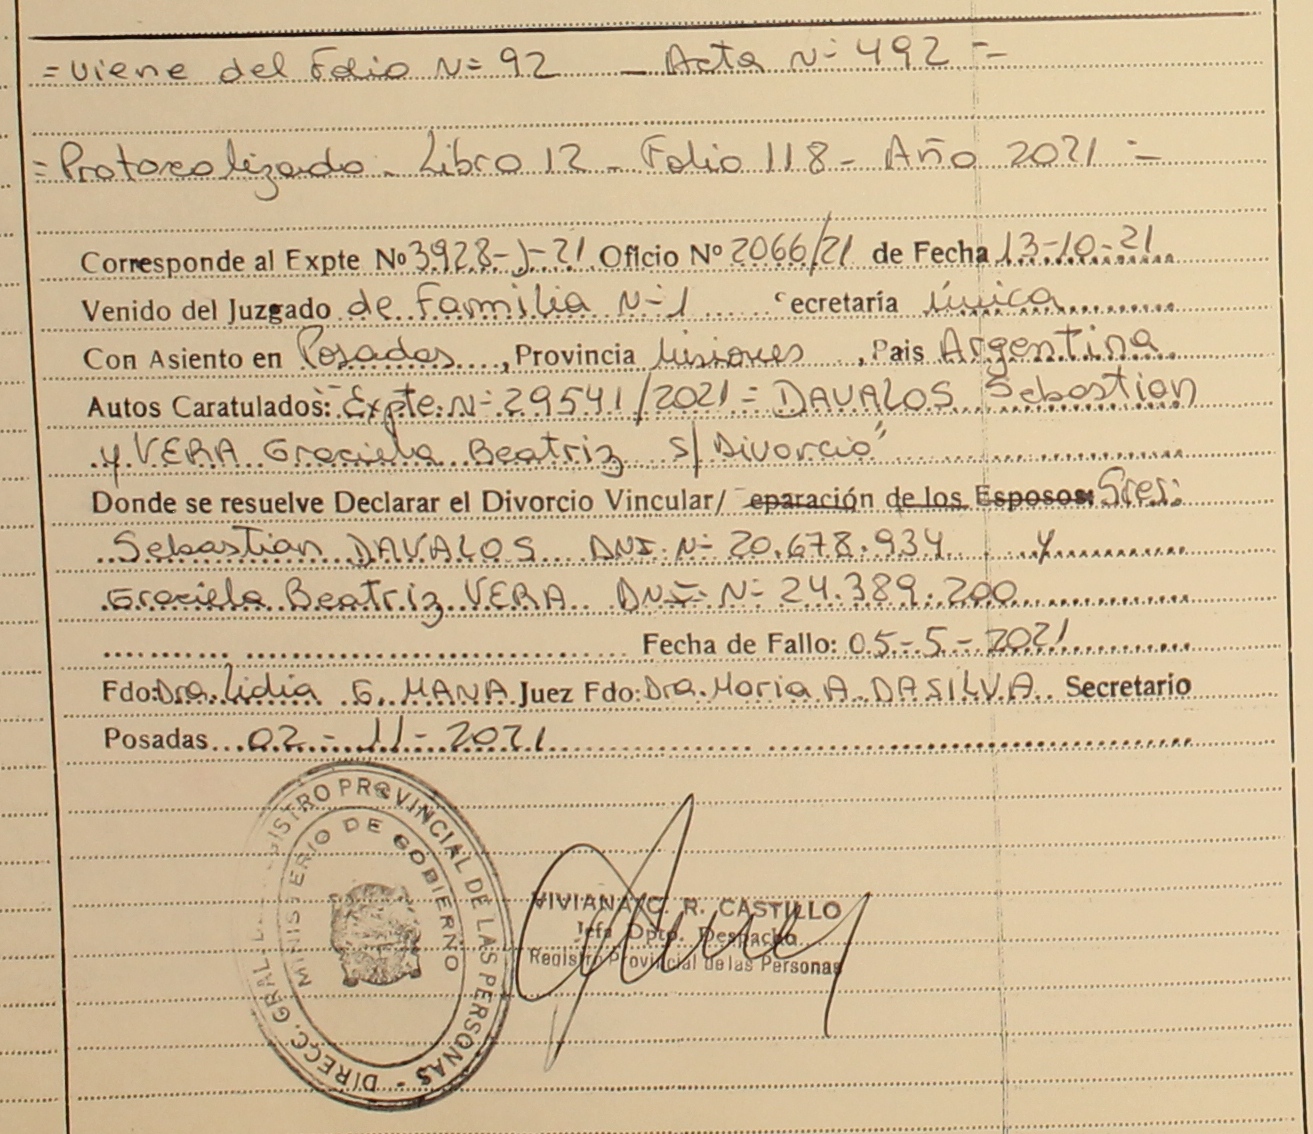 = viene del Folio N= 92 — Acta N= 492 =
= Protocolizado - Libro 12 - Folio 118 - Año 2021 =
Corresponde al Expte Nº 3928-J-21 Oficio Nº 2066/21 de Fecha 13-10-21
Venido del Juzgado de Familia N=1 ecretaría única
Con Asiento en Posadas, Provincia Misiones, Pais Argentina
Autos Caratulados: "Expte. N= 29541/2021 = DAVALOS Sebastian
y VERA Graciela Beatriz s/ Divorcio"
Donde se resuelve Declarar el Divorcio Vincular/ eparación de los Esposos: Sres:
Sebastian DAVALOS DNI N= 20.678.934 y
Graciela Beatriz VERA DNI N= 24.389.200
Fecha de Fallo: 05-5-2021
Fdo: Dra. Lidia G. MANA Juez Fdo: Dra. Maria A. DASILVA Secretario
Posadas 02-11-2021
DIRECC. GRAL. ISTRO PROVINCIAL DE LAS PERSONAS -
MINISTERIO DE GOBIERNO
VIVIANA C. R. CASTILLO
Jefa Dpto. Despacho
Registro Provincial de las Personas